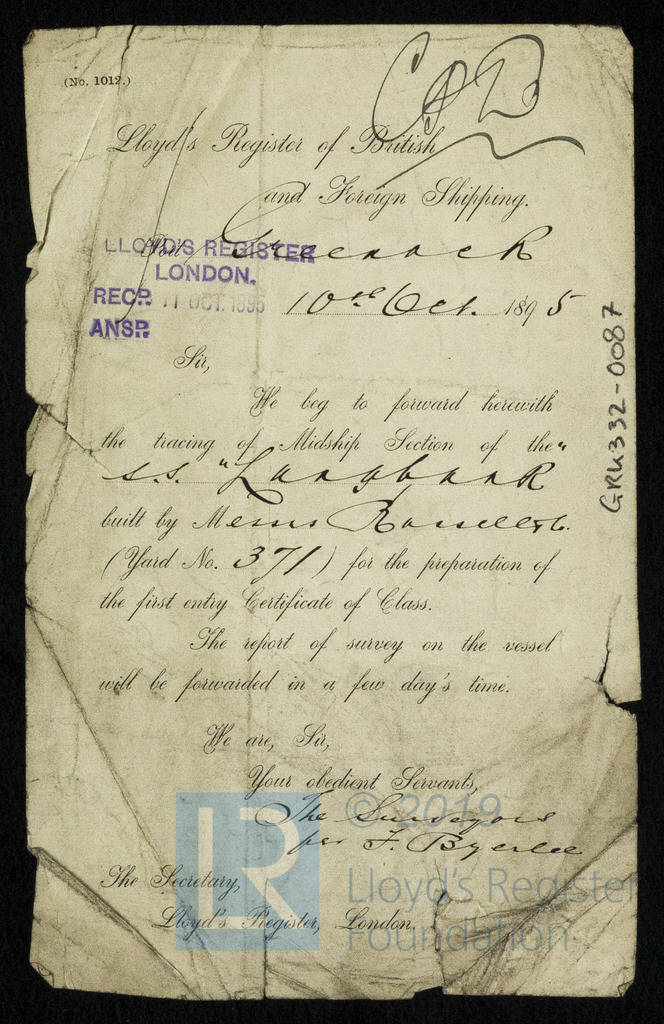 (No. 1012.)
Lloyd's Register of British
and Foreign Shipping.
Port Greenock
LLOYD'S REGISTER
LONDON.
RECD. 11 OCT. 1895
ANSD.
10th Oct. 1895
Sir,
We beg to forward herewith
the tracing of Midship Section of the "
s.s. "Langbank
built by Messrs Russell & Co.
(Yard No. 371) for the preparation of
the first entry Certificate of Class.
The report of survey on the vessel
will be forwarded in a few day's time.
We are, Sir,
Your obedient Servants,
The Surveyors
per F. Byerlee
The Secretary,
Lloyd's Register, London.
GRK332-0087
LR
© 2019
Lloyd's Register
Foundation